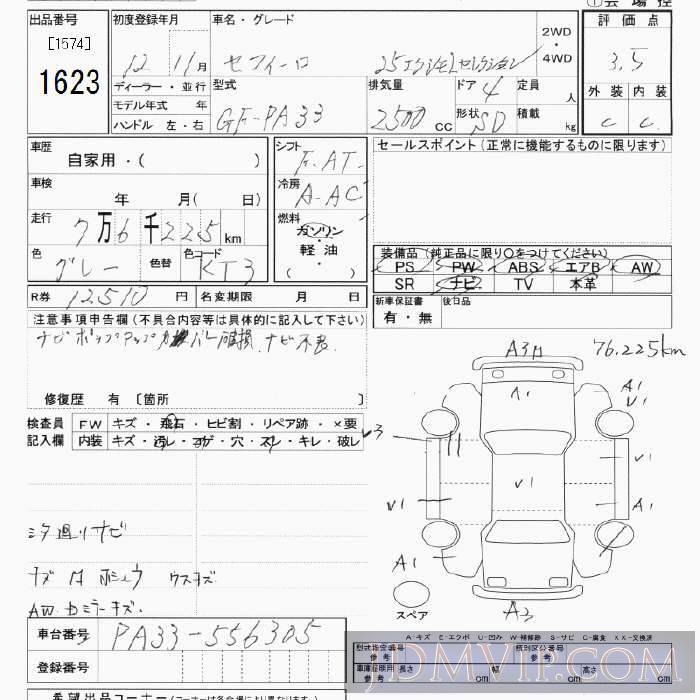 出品番号
[1574]
1623
初度登録年月
12 11月
ディーラー・並行
モデル年式 年
ハンドル 左・右
車名・グレード
セフィーロ
2WD
・
4WD
型式
GF-PA33
排気量
2500 CC
ドア 4
形状 SD
定員 人
積載 kg
評価点
3.5
外装 内装
C C
車歴
自家用・( )
車検
年 月( 日)
走行
7万6千225km
色
グレー
色替
色コード
KT3
シフト
F-AT
冷房
A-AC
燃料
ガソリン
・
軽油
( )
セールスポイント(正常に機能するものに限ります)
装備品(純正品に限り○をつけてください)
PS PW ABS エアB AW
SR ナビ TV 本革
新車保証書
有・無
後日品
R券 12,510 円
名変期限 月 日
注意事項申告欄(不具合内容等は具体的に記入して下さい)
修復歴 有 [箇所 ]
検査員
記入欄
FW キズ・飛石・ヒビ割・リペア跡・×要
内装 キズ・汚レ・コゲ・穴・スレ・キレ・破レ
76,225km
A1
A1
V1
V3
V1
V1
V1
A1
A1
スペア
A3
AWカミラーキズ.
車台番号 PA33-556305
登録番号
A-キズ E-エクボ U-凹み W-補修跡 S-サビ C-腐食 XX-交換済
型式指定番号
参考
類別区分番号
参考
車庫証明用
参考
長さ cm
幅 cm
高さ cm
JDMVIP.COM
希望出品コーナー